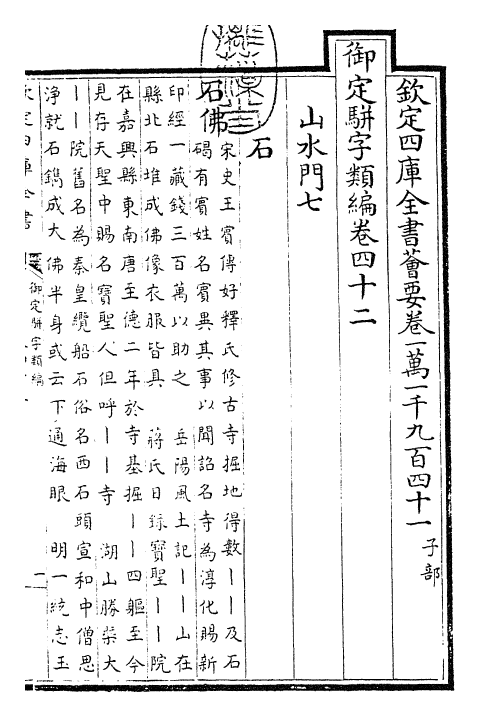 欽定四庫全書薈要卷一萬一千九百四十一 子部
御定駢字類編卷四十二
山水門七
石
石佛 宋史王賓傳好釋氏修古寺掘地得數丨丨及石
碣有賓姓名賓異其事以聞詔名寺為淳化賜新
印經一藏錢三百萬以助之 岳陽風土記丨丨山在
縣北石堆成佛像衣服皆具 蔣氏日錄寶聖丨丨院
在嘉興縣東南唐至德二年於寺基掘丨丨四軀至今
見存天聖中賜名寶聖人但呼丨丨寺 湖山勝槩大
丨丨院舊名為秦皇纜船石俗名西石頭宣和中僧思
淨就石鐫成大佛半身或云下通海眼 明一統志玉
欽定四庫全書
御定駢字類編
一